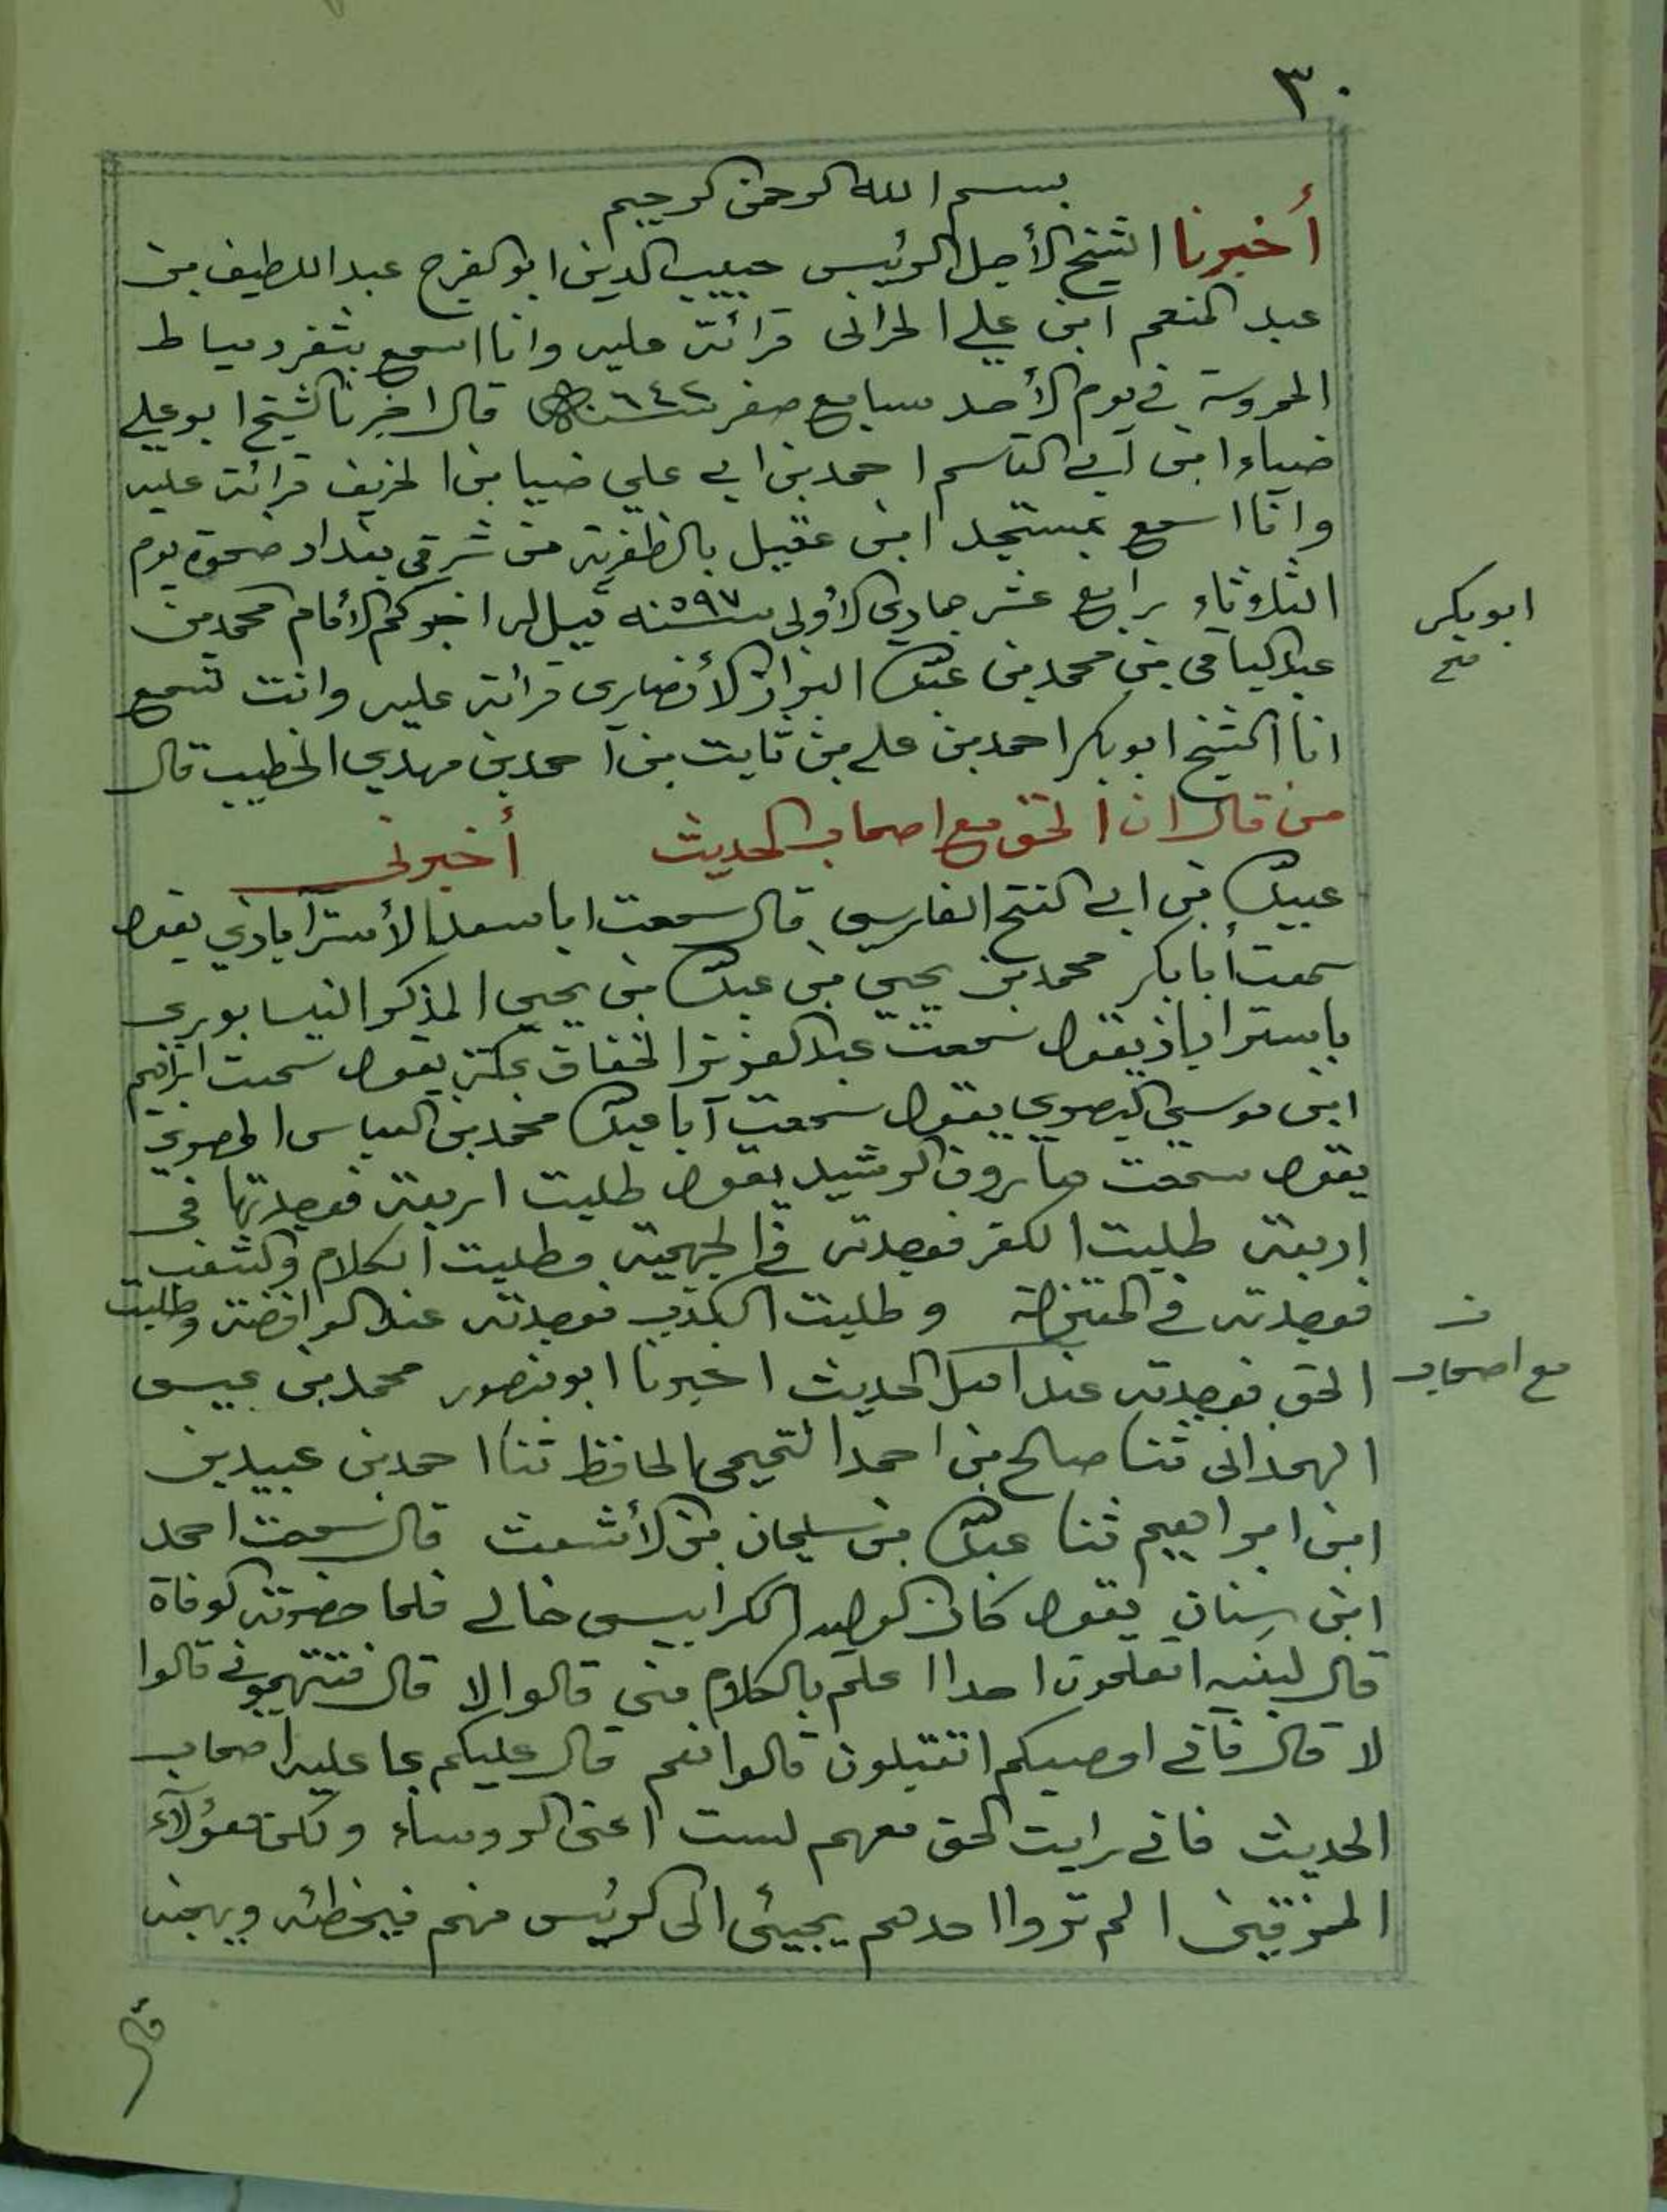 ٣٠
بسم الله الرحمن الرحيم
أخبرنا الشيخ الأجل الرئيس حبيب الدين ابو الفرج عبد اللطيف بن
عبد المنعم ابن علي الحراني قرائة عليه وانا اسمع بثغر دمياط
المحروسة في يوم الأحد سابع صفر سنة ٦٤٢ قال اخبرنا الشيخ ابو علي
ضياء ابن أبي القاسم احمد بن ابي علي ضيا بن الخريف قرائة عليه
وانا اسمع بمسجد ابن عقيل بالظفرية من شرقي بغداد ضحوة يوم
الثلاوثاء رابع عشر جمادي الأولى سنة ٥٩٧ قيل له اخبركم الأمام محمد بن
ابو بكر
صح
عبد الباقي بن محمد بن عبد الله البزاز الأنصاري قرائة عليه وانت تسمع
انا الشيخ ابو بكر احمد بن علي بن ثابت بن احمد بن مهدي الخطيب قال
من قال ان الحق مع اصحاب الحديث أخبرني
عبيد الله بن ابي الفتح الفارسي قال سمعت ابا سعد الأسترآبادي يقول
سمعت أبا بكر محمد بن يحيي بن عبد الله بن يحيي المذكر النيسابوري
باستراباذ يقول سمعت عبد العزيز الخفاق بمكة يقول سمعت ابراهيم
ابن موسي البصري يقول سمعت أبا عبد الله محمد بن العباس المصري
يقول سمعت هارون الرشيد يقول طلبت اربعة فوجدتها في
اربعة طلبت الكفر فوجدته في الجهمية وطلبت الكلام والشغب
فوجدته في المعتزلة وطلبت الكذب فوجدته عند الرافضة وطلبت
الحق فوجدته عند اهل الحديث اخبرنا ابو منصور محمد بن عيسى
ن
مع اصحاب
الهمداني ثنا صالح بن احمد التميمي الحافظ ثنا احمد بن عبيد بن
ابن ابراهيم ثنا عبد الله بن سليمان بن الأشعث قال سمعت احمد
ابن سنان يقول كان الوليد الكرابيسي خالي فلما حضرته الوفاة
قال لبنيه اتعلمون احدا اعلم بالكلام مني قالوا لا قال فتتهموني قالوا
لا قال فاني اوصيكم اتقبلون قالوا نعم قال عليكم بما عليه اصحاب
الحديث فاني رايت الحق معهم لست اعني الروساء ولكن هؤلآء
الممزقين الم تروا احدهم يجيئ الى الرئيس منهم فيخطئه ويهجنه
قال